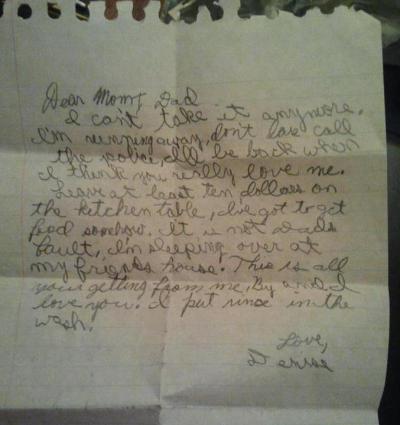 Dear Mom, Dad
I can't take it anymore.
I'm running away, don't call
the police, I'll be back when
I think you really love me.
Leave at least ten dollars on
the kitchen table, I've got to get
food somehow. It is not dads
fault, i'm sleeping over at
my friends house. This is all
your getting from me. By and I
love you. I put in the
wash.
Love,
Denise